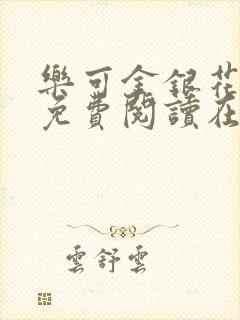 樂可金銀花
免費閱讀在
雲舒雲